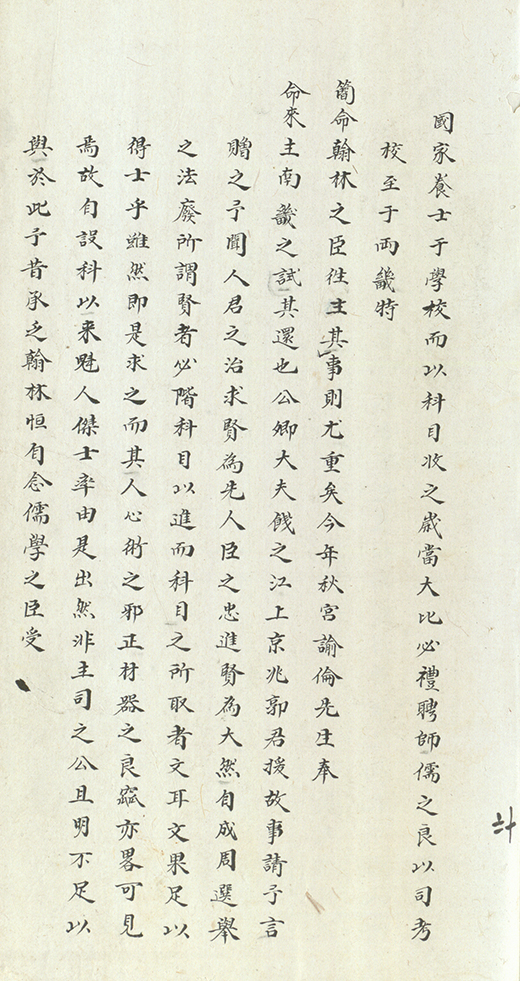 國家養士于學校而以科目收之歲當大比必禮聘師儒之良以司考
校至于兩畿特
簡命翰林之臣往主其事則尤重矣今年秋宮諭倫先生奉
命來主南畿之試其還也公卿大夫餞之江上京兆郭君援故事請予言
贈之予聞人君之治求賢為先人臣之忠進賢為大然自成周選舉
之法廢所謂賢者必階科目以進而科目之所取者文耳文果足以
得士乎雖然即是求之而其人心術之邪正材器之良窳亦畧可見
焉故自設科以来魁人傑士率由是出然非主司之公且明不足以
與於此予昔承乏翰林恒自念儒學之臣受